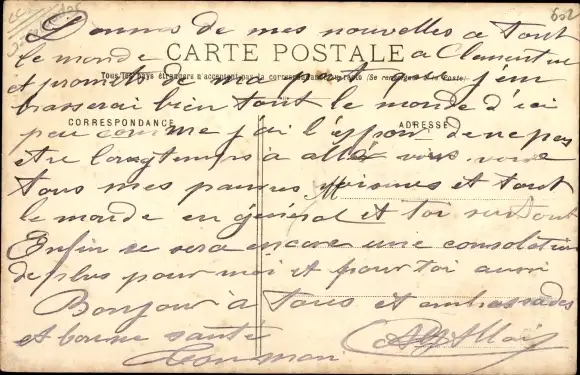 602
Donnes de mes nouvelles a tout
le monde a Clementine
CARTE POSTALE
et promets de ma part que j'en
Tous les pays étrangers n'acceptent pas la correspondance au recto (Se renseigner à la Poste)
brasserai bien tout le monde d'ici
CORRESPONDANCE
ADRESSE
peu comme j'ai l'espoir de ne pas
etre longtemps à aller vous voire
tous mes pauvres voisines et tout
M
le monde en général et toi surtout
Enfin ce sera encore une consolation
de plus pour moi et pour toi aussi
Bonjour à tous et embrassades
et bonne santé